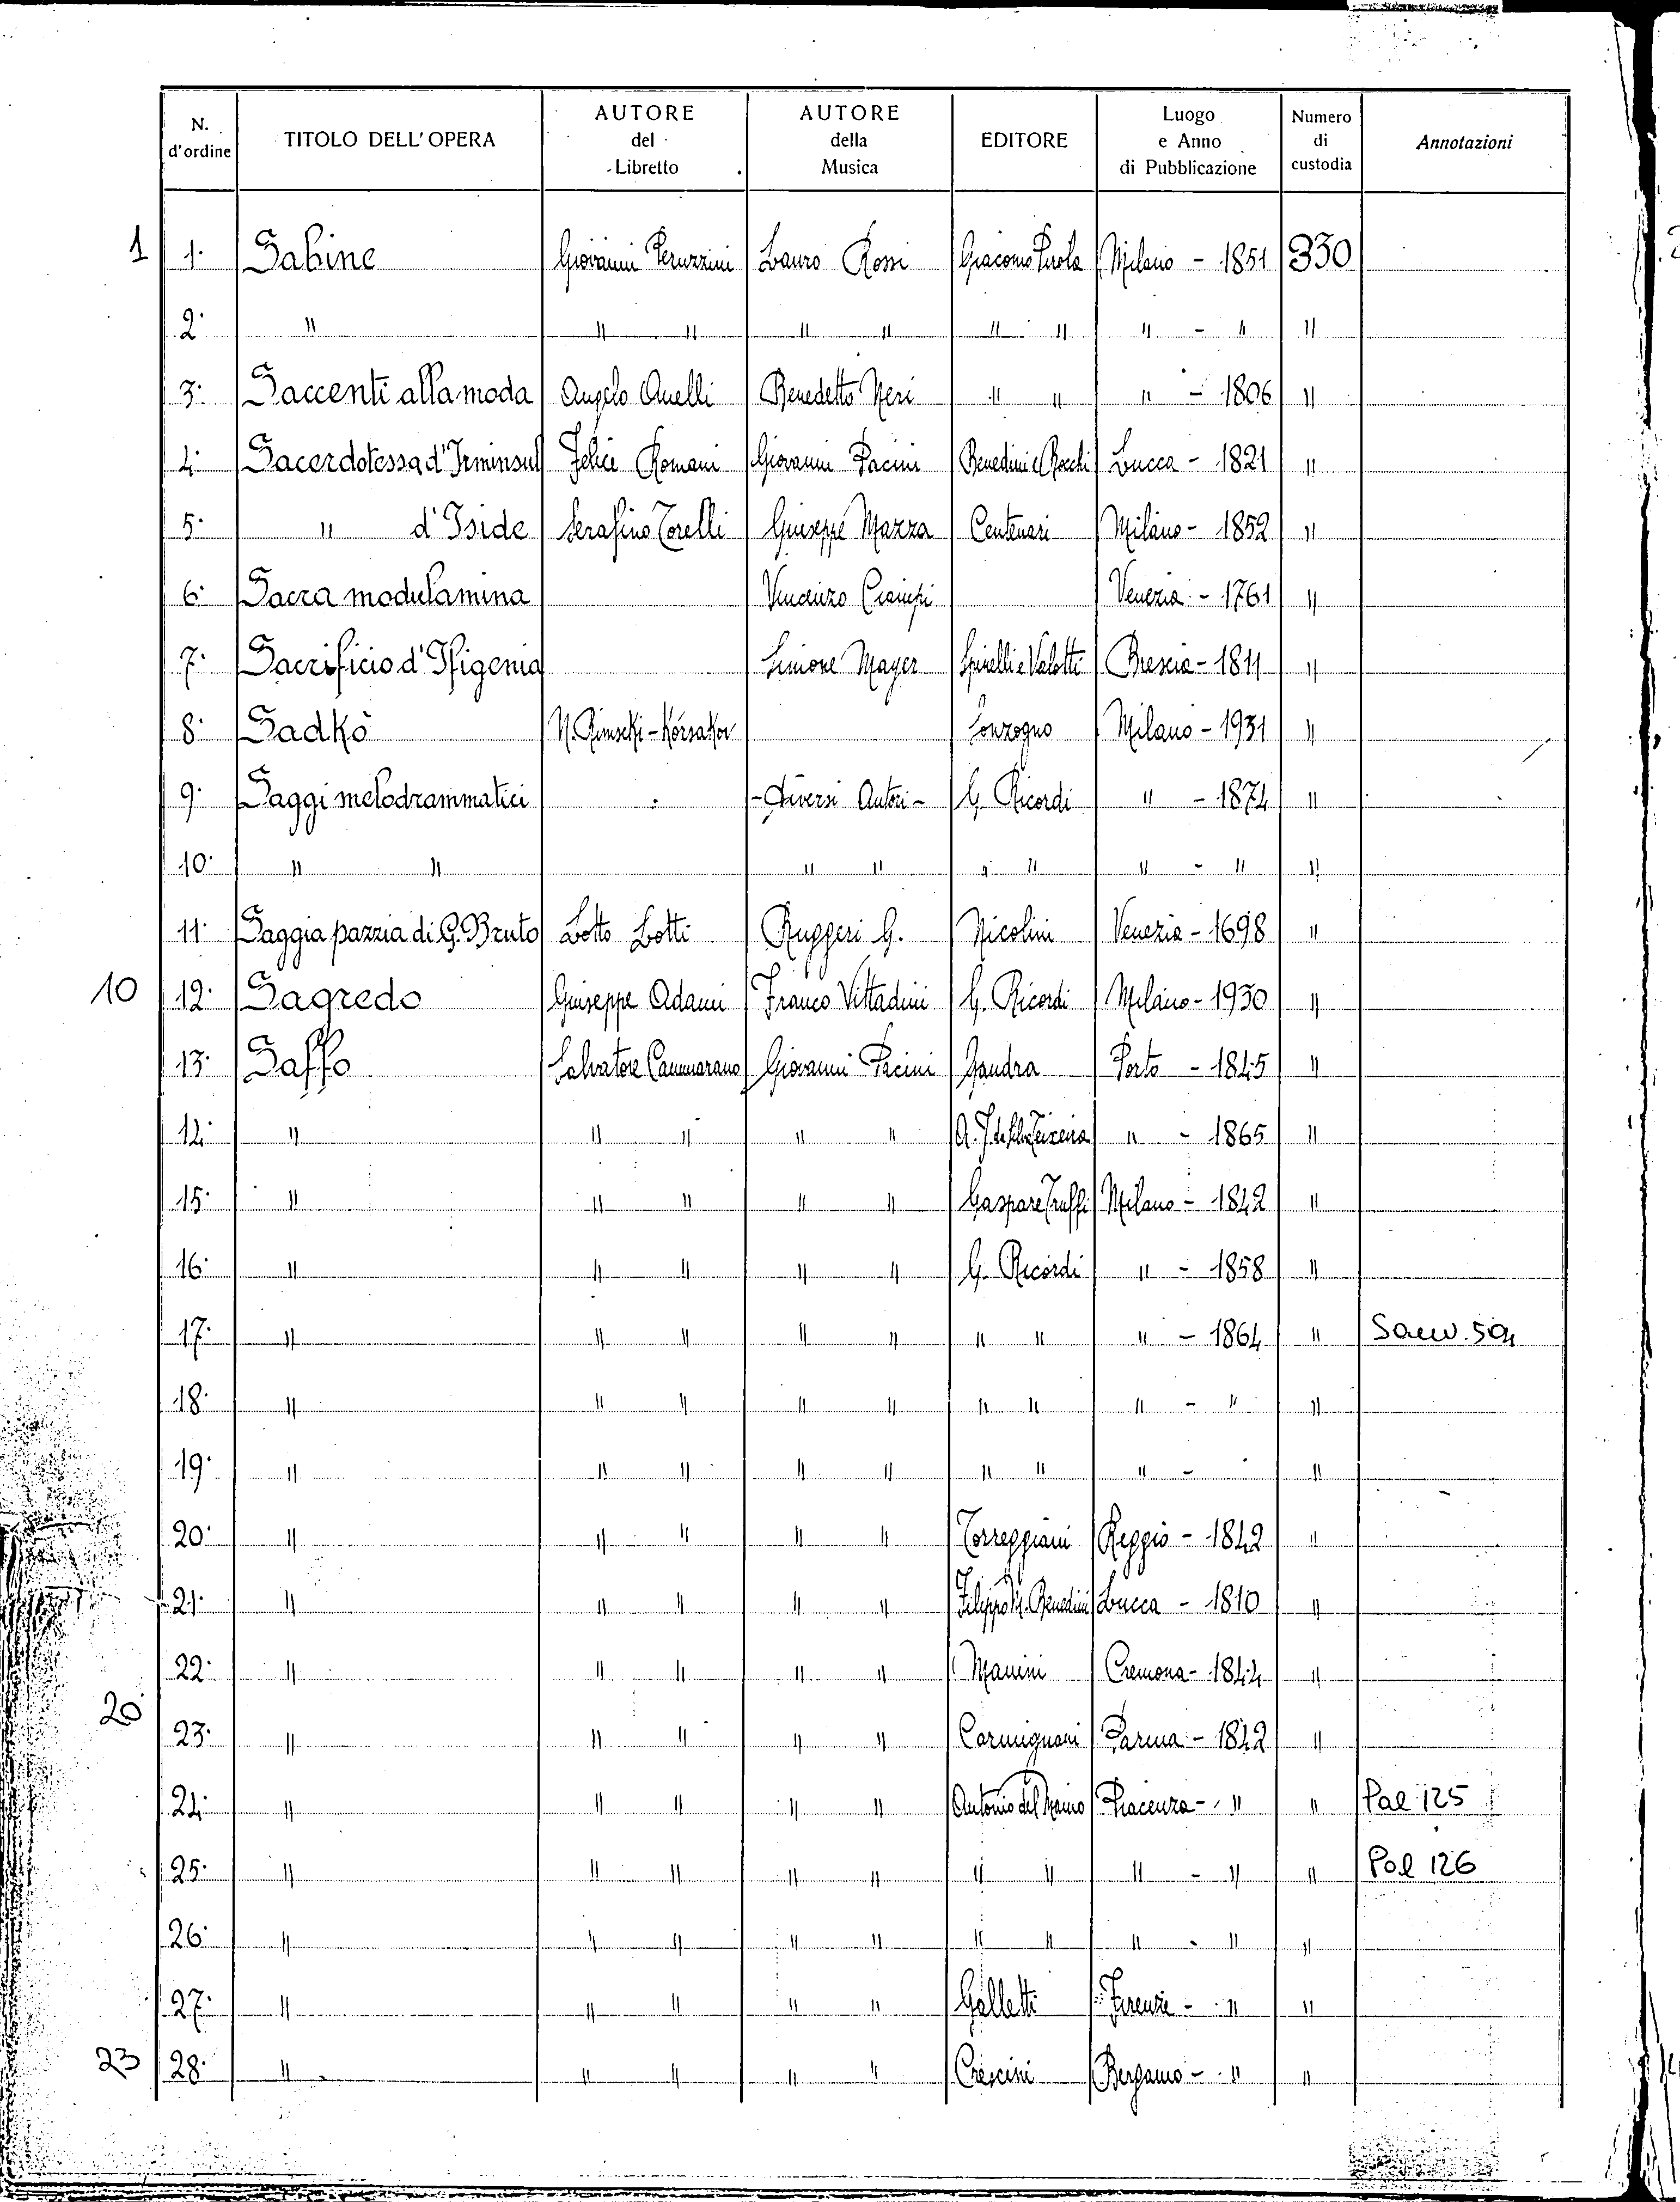 N. d'ordine TITOLO DELL'OPERA AUTORE del Libretto AUTORE della Musica EDITORE Luogo e Anno di Pubblicazione Numero di custodia Annotazioni
1 1. Sabine Giovanni Peruzzini Lauro Rossi Giacomo Pirola Milano - 1851 330
2. " " " " " " " " - " "
3. Saccenti alla moda Angelo Anelli Benedetto Neri " " " - 1806 "
4. Sacerdotessa d'Irminsul Felice Romani Giovanni Pacini Benedini e Rocchi Lucca - 1821 "
5. " d'Iside Serafino Torelli Giuseppe Mazza Centenari Milano - 1852 "
6. Sacra modulamina Vincenzo Ciampi Venezia - 1761 "
7. Sacrificio d'Ifigenia Simone Mayer Spinelli e Valotti Brescia - 1811 "
8. Sadko N. Rimscki-Korsakov Sonzogno Milano - 1931 "
9. Saggi melodrammatici - Diversi Autori - G. Ricordi " - 1874 "
10. " " " " " " " - " "
11. Saggia pazzia di G. Bruto Lotto Lotti Ruggeri G. Nicolini Venezia - 1698 "
10 12. Sagredo Giuseppe Adami Franco Vittadini G. Ricordi Milano - 1930 "
13. Saffo Salvatore Cammarano Giovanni Pacini Gandra Porto - 1845 "
14. " " " " " A. J. Teixeira " - 1865 "
15. " " " " " Gaspare Truffi Milano - 1842 "
16. " " " " " G. Ricordi " - 1858 "
17. " " " " " " " " - 1864 " 504
18. " " " " " " " " - " "
19. " " " " " " " " - "
20. " " " " " Torreggiani Reggio - 1842 "
21. " " " " " Filippo M. Benedini Lucca - 1810 "
22. " " " " " Manini Cremona - 1844 "
20 23. " " " " " Carmignani Parma - 1842 "
24. " " " " " Antonio del Maino Piacenza - " " Pal 125
25. " " " " " " " " - " " Pal 126
26. " " " " " " " " - " "
27. " " " " " Galletti Firenze - " "
23 28. " " " " " Crescini Bergamo - " "